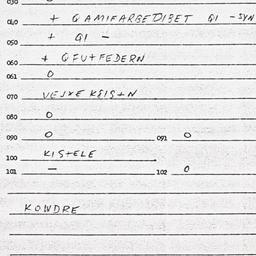 030
040 + QAMIFARBEDIBET QI - SYN
050 + QI -
060 + QFUTFEDERN
061 0
070 VEJXE KRISTN
080 0
090 0 091 0
100 KISTELE
101 - 102 0
KOWDRE